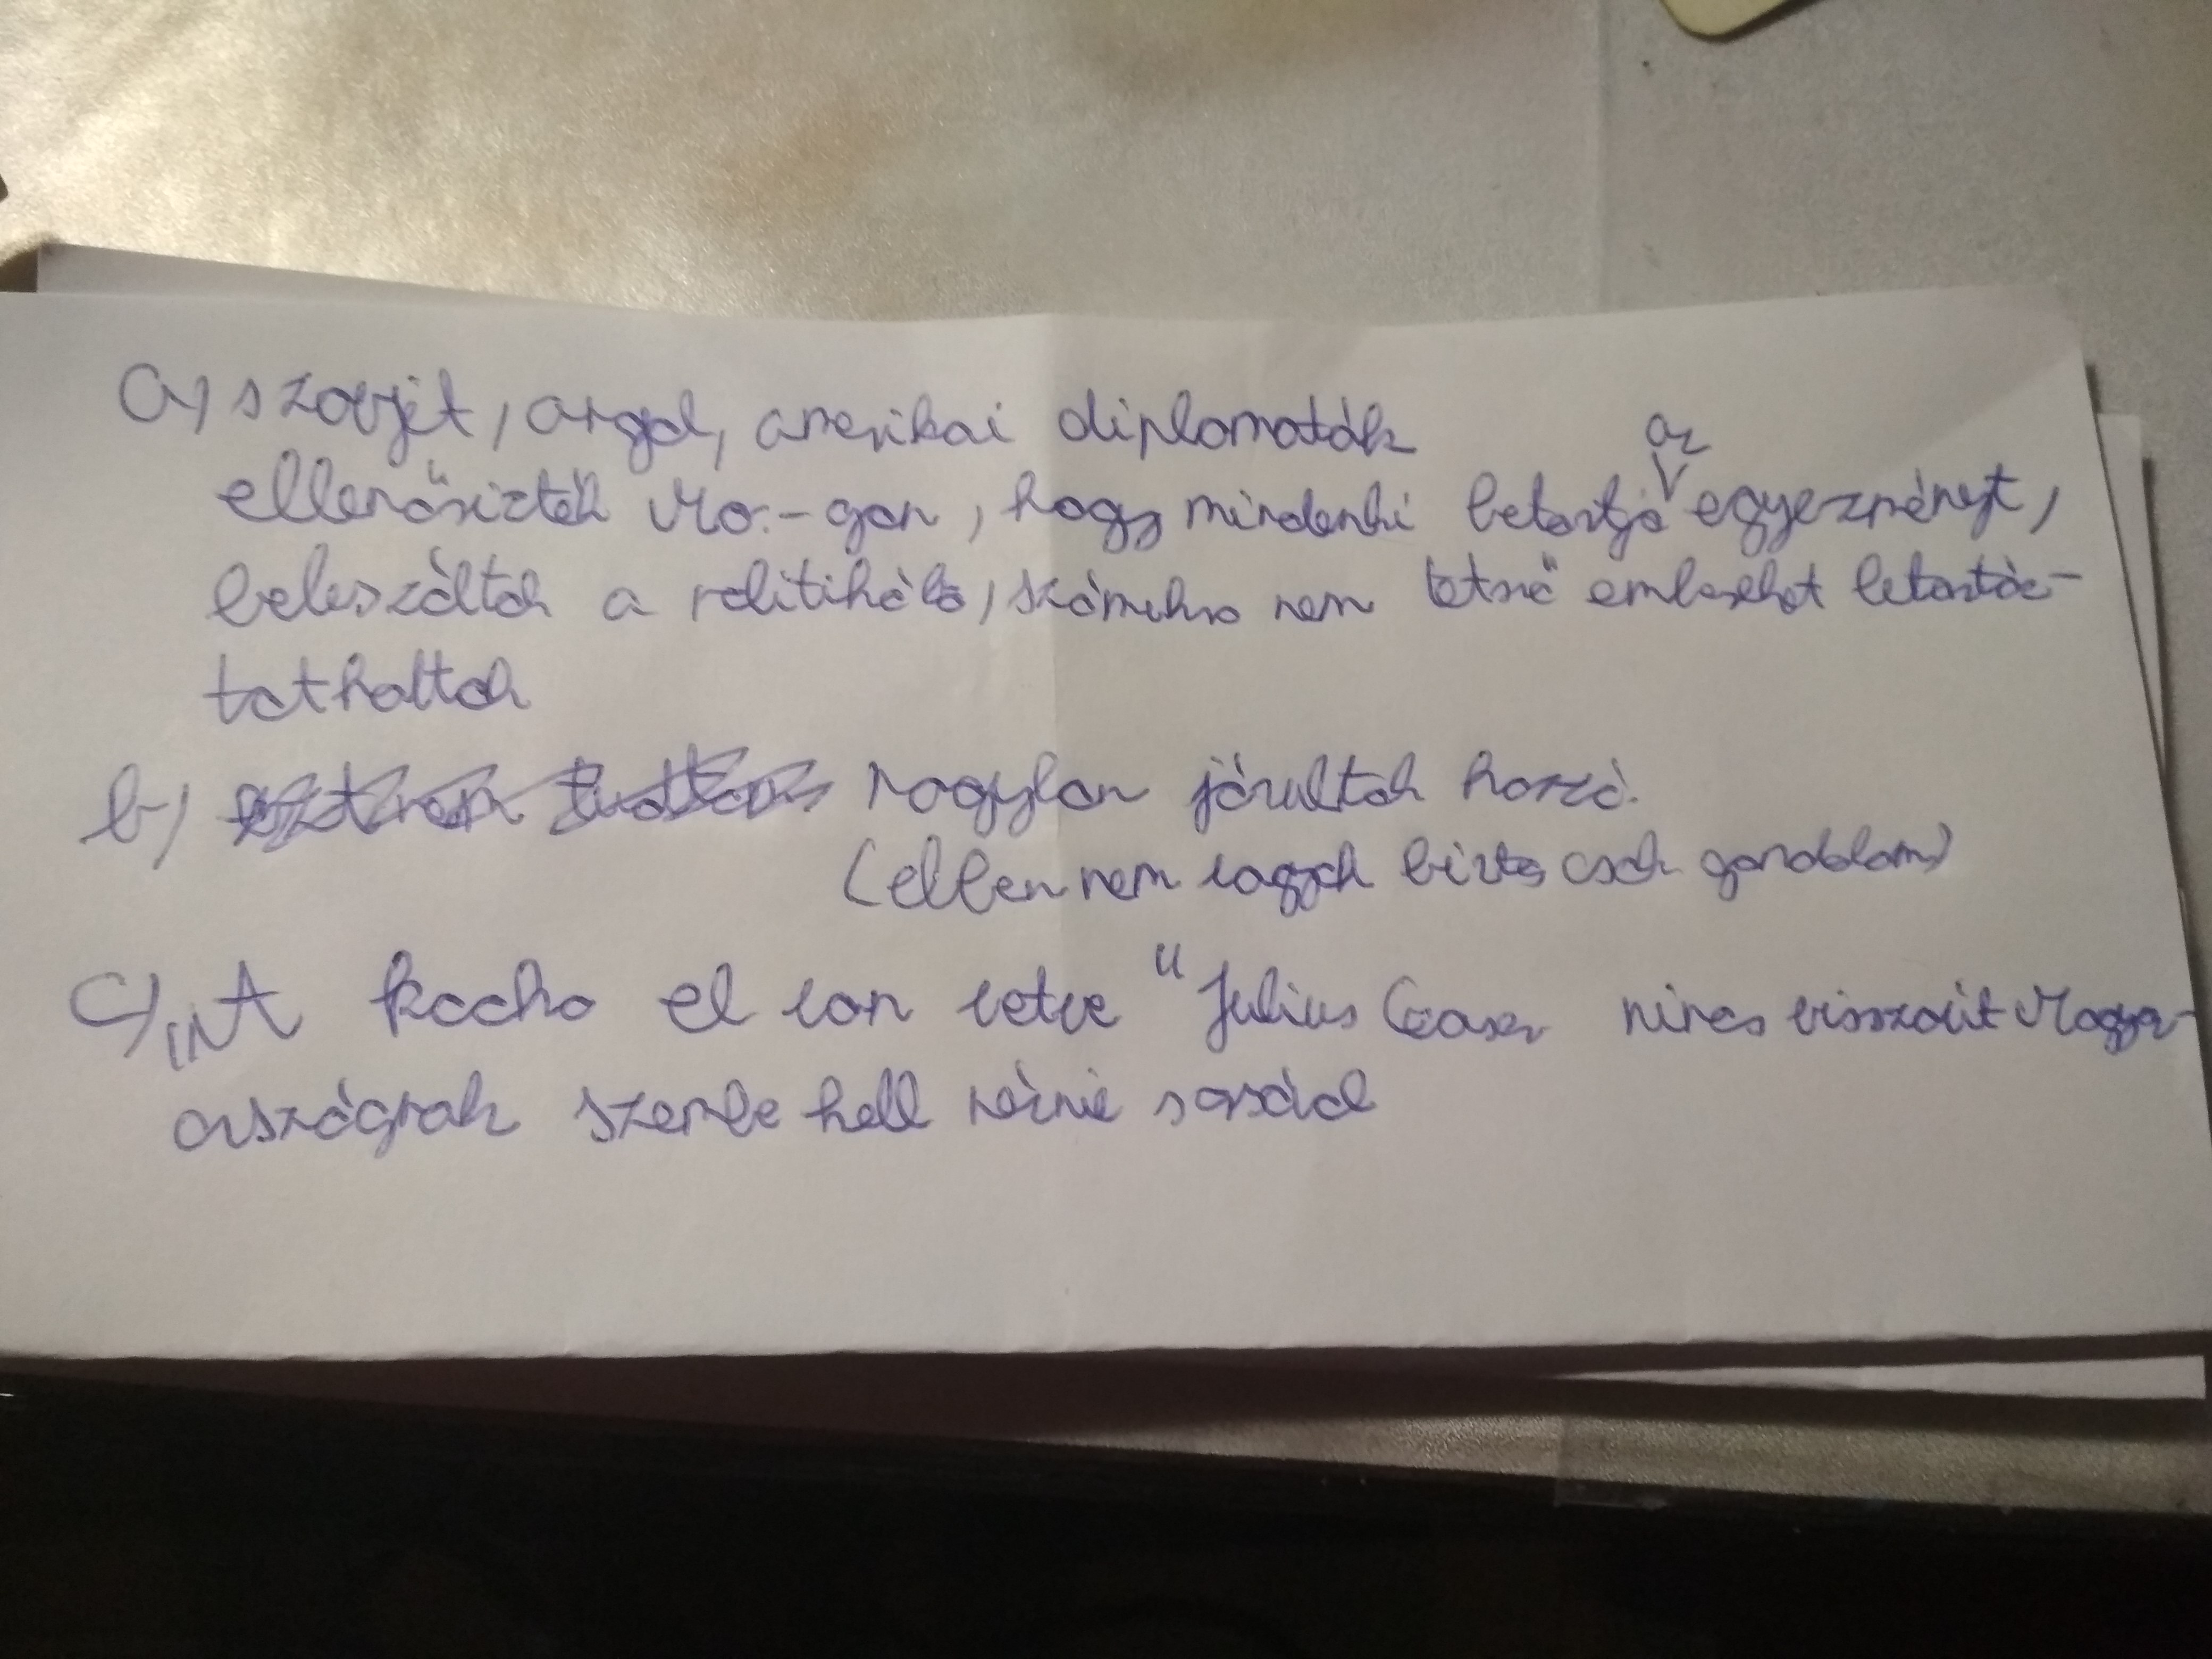 a) szovjet, angol, amerikai diplomaták
ellenőrizték Mo.-gon, hogy mindenki betartja az egyezményt,
beleszóltak a politikába, számukra nem tetsző embereket letartóz-
tathattak
b) nagyban járultak hozzá.
(ebben nem vagyok biztos csak gondolom)
c) "A kocka el van vetve" Julius Ceasar nincs visszaút Magyar-
országnak szembe kell néznie sorsával